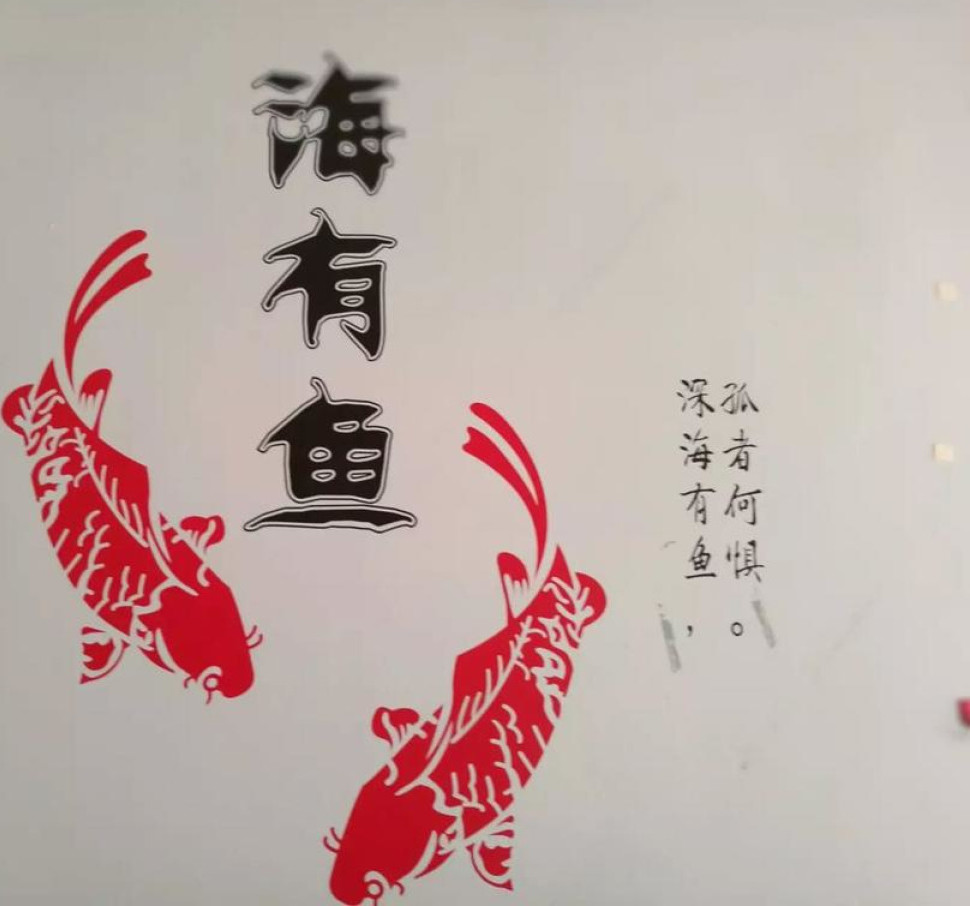 海有鱼
深海有鱼，
孤者何惧。